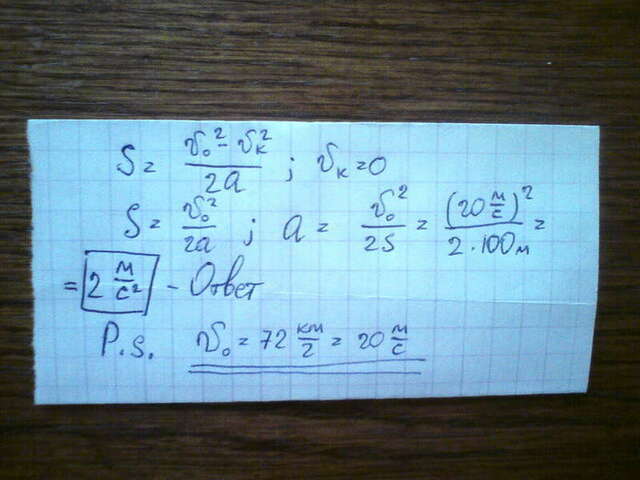 S = (v₀² - vк²)/2a ; vк = 0
S = v₀²/2a ; a = v₀²/2s = (20 м/с)²/2·100м =
= 2 м/с² - Ответ
P.S. v₀ = 72 км/г = 20 м/с